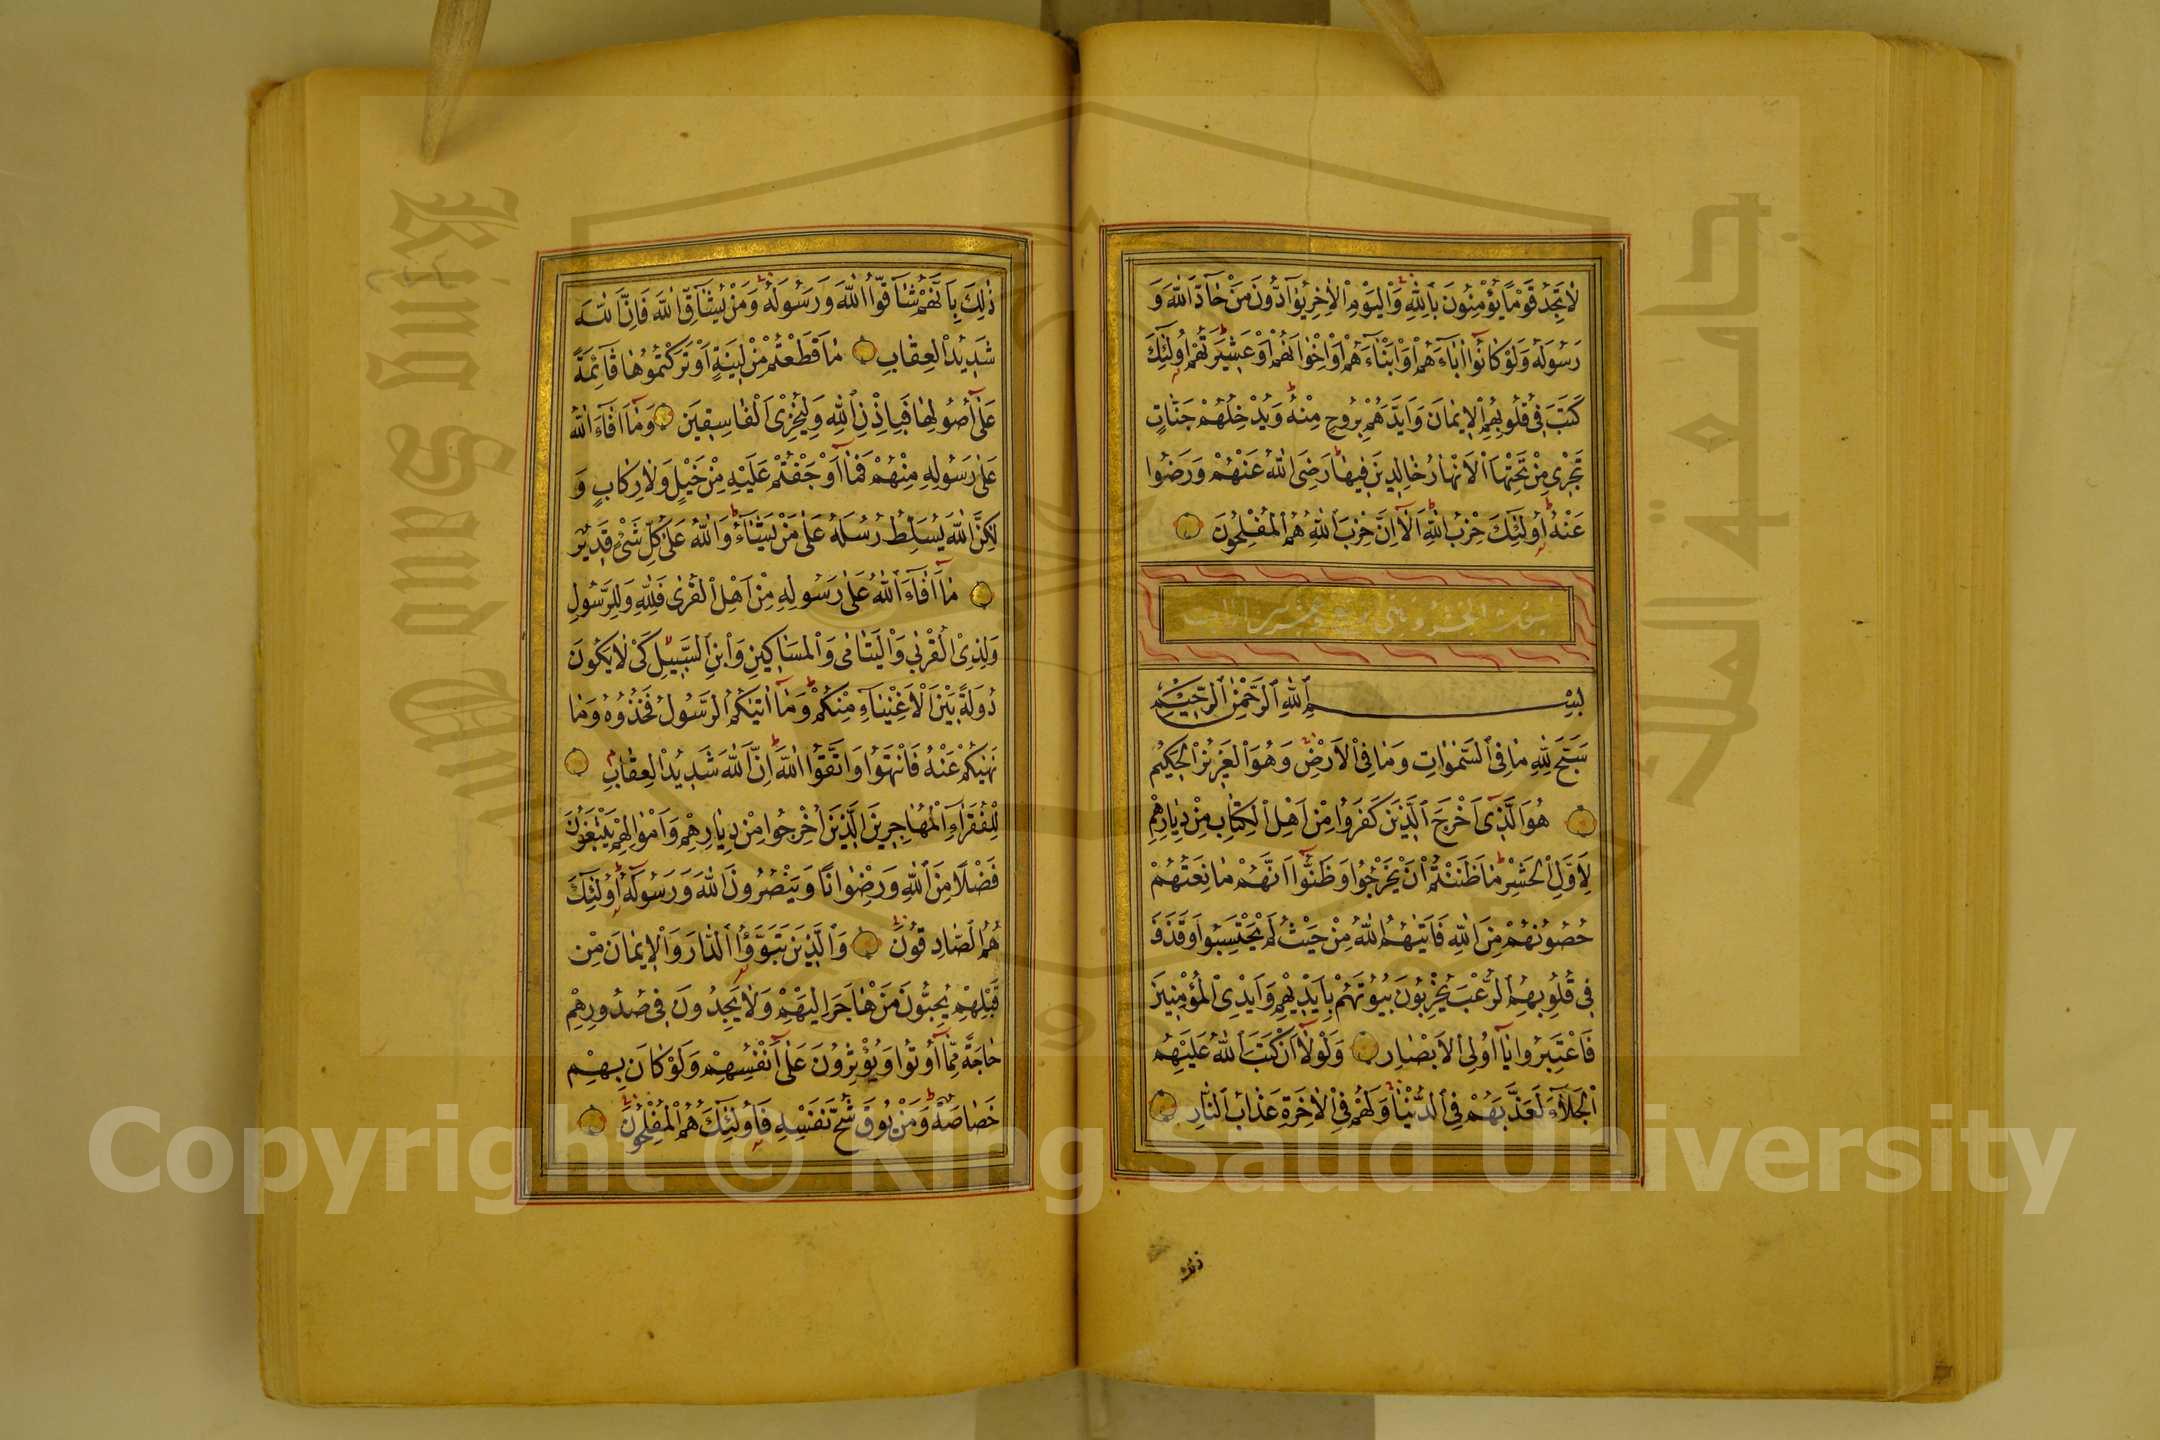 لَا تَجِدُ قَوْمًا يُؤْمِنُونَ بِاللّٰهِ وَالْيَوْمِ الْاٰخِرِ يُوَٓادُّونَ مَنْ حَٓادَّ اللّٰهَ وَ
رَسُولَهُ وَلَوْ كَانُٓوا اٰبَٓاءَهُمْ اَوْ اَبْنَٓاءَهُمْ اَوْ اِخْوَانَهُمْ اَوْ عَشِيرَتَهُمْ اُولٰٓئِكَ
كَتَبَ فِي قُلُوبِهِمُ الْاِيمَانَ وَاَيَّدَهُمْ بِرُوحٍ مِنْهُ وَيُدْخِلُهُمْ جَنَّاتٍ
تَجْرِي مِنْ تَحْتِهَا الْاَنْهَارُ خَالِدِينَ فِيهَا رَضِيَ اللّٰهُ عَنْهُمْ وَرَضُوا
عَنْهُ اُولٰٓئِكَ حِزْبُ اللّٰهِ اَلَٓا اِنَّ حِزْبَ اللّٰهِ هُمُ الْمُفْلِحُونَ
بِسْمِ اللّٰهِ الرَّحْمٰنِ الرَّحِيمِ
سَبَّحَ لِلّٰهِ مَا فِي السَّمٰوَاتِ وَمَا فِي الْاَرْضِ وَهُوَ الْعَزِيزُ الْحَكِيمُ
هُوَ الَّذِٓي اَخْرَجَ الَّذِينَ كَفَرُوا مِنْ اَهْلِ الْكِتَابِ مِنْ دِيَارِهِمْ
لِاَوَّلِ الْحَشْرِ مَا ظَنَنْتُمْ اَنْ يَخْرُجُوا وَظَنُّٓوا اَنَّهُمْ مَانِعَتُهُمْ
حُصُونُهُمْ مِنَ اللّٰهِ فَاَتٰيهُمُ اللّٰهُ مِنْ حَيْثُ لَمْ يَحْتَسِبُوا وَقَذَفَ
فِي قُلُوبِهِمُ الرُّعْبَ يُخْرِبُونَ بُيُوتَهُمْ بِاَيْدِيهِمْ وَاَيْدِي الْمُؤْمِنِينَ
فَاعْتَبِرُوا يَٓا اُولِي الْاَبْصَارِ وَلَوْلَٓا اَنْ كَتَبَ اللّٰهُ عَلَيْهِمُ
الْجَلَٓاءَ لَعَذَّبَهُمْ فِي الدُّنْيَا وَلَهُمْ فِي الْاٰخِرَةِ عَذَابُ النَّارِ
ذلك
ذٰلِكَ بِاَنَّهُمْ شَٓاقُّوا اللّٰهَ وَرَسُولَهُ وَمَنْ يُشَٓاقِّ اللّٰهَ فَاِنَّ اللّٰهَ
شَدِيدُ الْعِقَابِ مَا قَطَعْتُمْ مِنْ لِينَةٍ اَوْ تَرَكْتُمُوهَا قَٓائِمَةً
عَلٰٓى اُصُولِهَا فَبِاِذْنِ اللّٰهِ وَلِيُخْزِيَ الْفَاسِقِينَ وَمَٓا اَفَٓاءَ اللّٰهُ
عَلٰى رَسُولِهِ مِنْهُمْ فَمَٓا اَوْجَفْتُمْ عَلَيْهِ مِنْ خَيْلٍ وَلَا رِكَابٍ وَ
لٰكِنَّ اللّٰهَ يُسَلِّطُ رُسُلَهُ عَلٰى مَنْ يَشَٓاءُ وَاللّٰهُ عَلٰى كُلِّ شَيْءٍ قَدِيرٌ
مَٓا اَفَٓاءَ اللّٰهُ عَلٰى رَسُولِهِ مِنْ اَهْلِ الْقُرٰى فَلِلّٰهِ وَلِلرَّسُولِ
وَلِذِي الْقُرْبٰى وَالْيَتَامٰى وَالْمَسَاكِينِ وَابْنِ السَّبِيلِ كَيْ لَا يَكُونَ
دُولَةً بَيْنَ الْاَغْنِيَٓاءِ مِنْكُمْ وَمَٓا اٰتٰيكُمُ الرَّسُولُ فَخُذُوهُ وَمَا
نَهٰيكُمْ عَنْهُ فَانْتَهُوا وَاتَّقُوا اللّٰهَ اِنَّ اللّٰهَ شَدِيدُ الْعِقَابِ
لِلْفُقَرَٓاءِ الْمُهَاجِرِينَ الَّذِينَ اُخْرِجُوا مِنْ دِيَارِهِمْ وَاَمْوَالِهِمْ يَبْتَغُونَ
فَضْلًا مِنَ اللّٰهِ وَرِضْوَانًا وَيَنْصُرُونَ اللّٰهَ وَرَسُولَهُ اُولٰٓئِكَ
هُمُ الصَّادِقُونَ وَالَّذِينَ تَبَوَّؤُ الدَّارَ وَالْاِيمَانَ مِنْ
قَبْلِهِمْ يُحِبُّونَ مَنْ هَاجَرَ اِلَيْهِمْ وَلَا يَجِدُونَ فِي صُدُورِهِمْ
حَاجَةً مِمَّٓا اُوتُوا وَيُؤْثِرُونَ عَلٰٓى اَنْفُسِهِمْ وَلَوْ كَانَ بِهِمْ
خَصَاصَةٌ وَمَنْ يُوقَ شُحَّ نَفْسِهِ فَاُولٰٓئِكَ هُمُ الْمُفْلِحُونَ
King Saud University
جامعة الملك
1957
Copyright © King Saud University